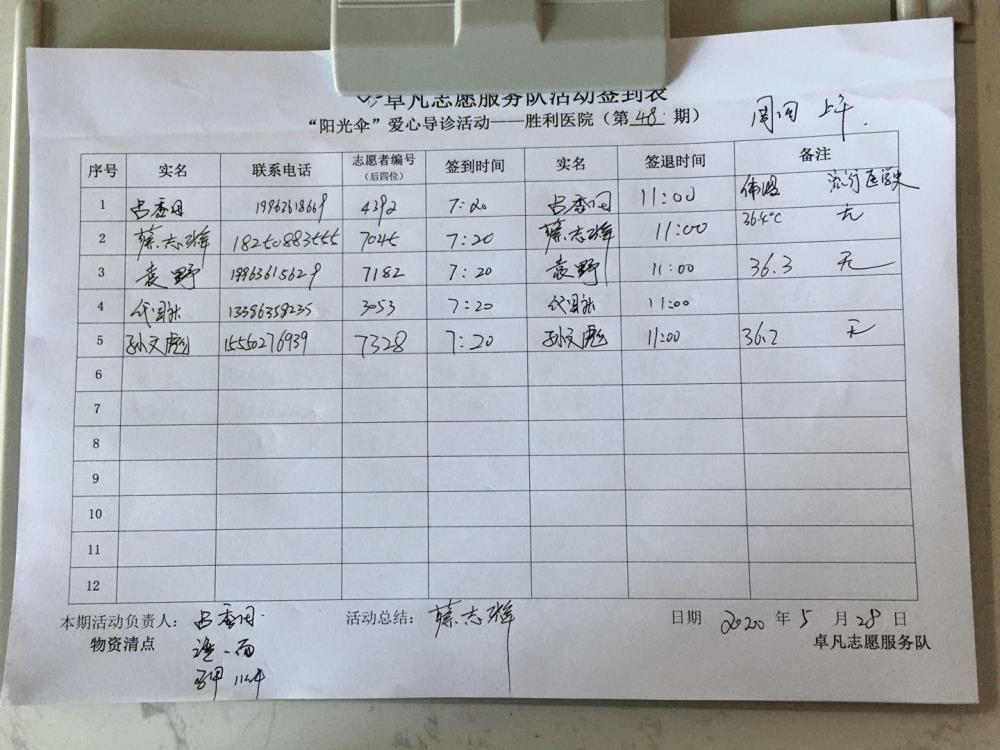 卓凡志愿服务队活动签到表
“阳光伞”爱心导诊活动——胜利医院（第 48 期） 周四 上午
序号 实名 联系电话 志愿者编号（后四位） 签到时间 实名 签退时间 备注
体温 流行医学史
1 占香园 19963618669 4392 7:20 占香园 11:00 36.4℃ 无
2 蔡志辉 18250883555 7045 7:20 蔡志辉 11:00
3 袁野 19963615629 7182 7:20 袁野 11:00 36.3 无
4 13396359235 3053 7:20 11:00
5 孙文彪 15550276939 7328 7:20 孙文彪 11:00 36.2 无
6
7
8
9
10
11
12
本期活动负责人： 占香园 活动总结： 蔡志辉 日期 2020 年 5 月 28 日
物资清点 卓凡志愿服务队